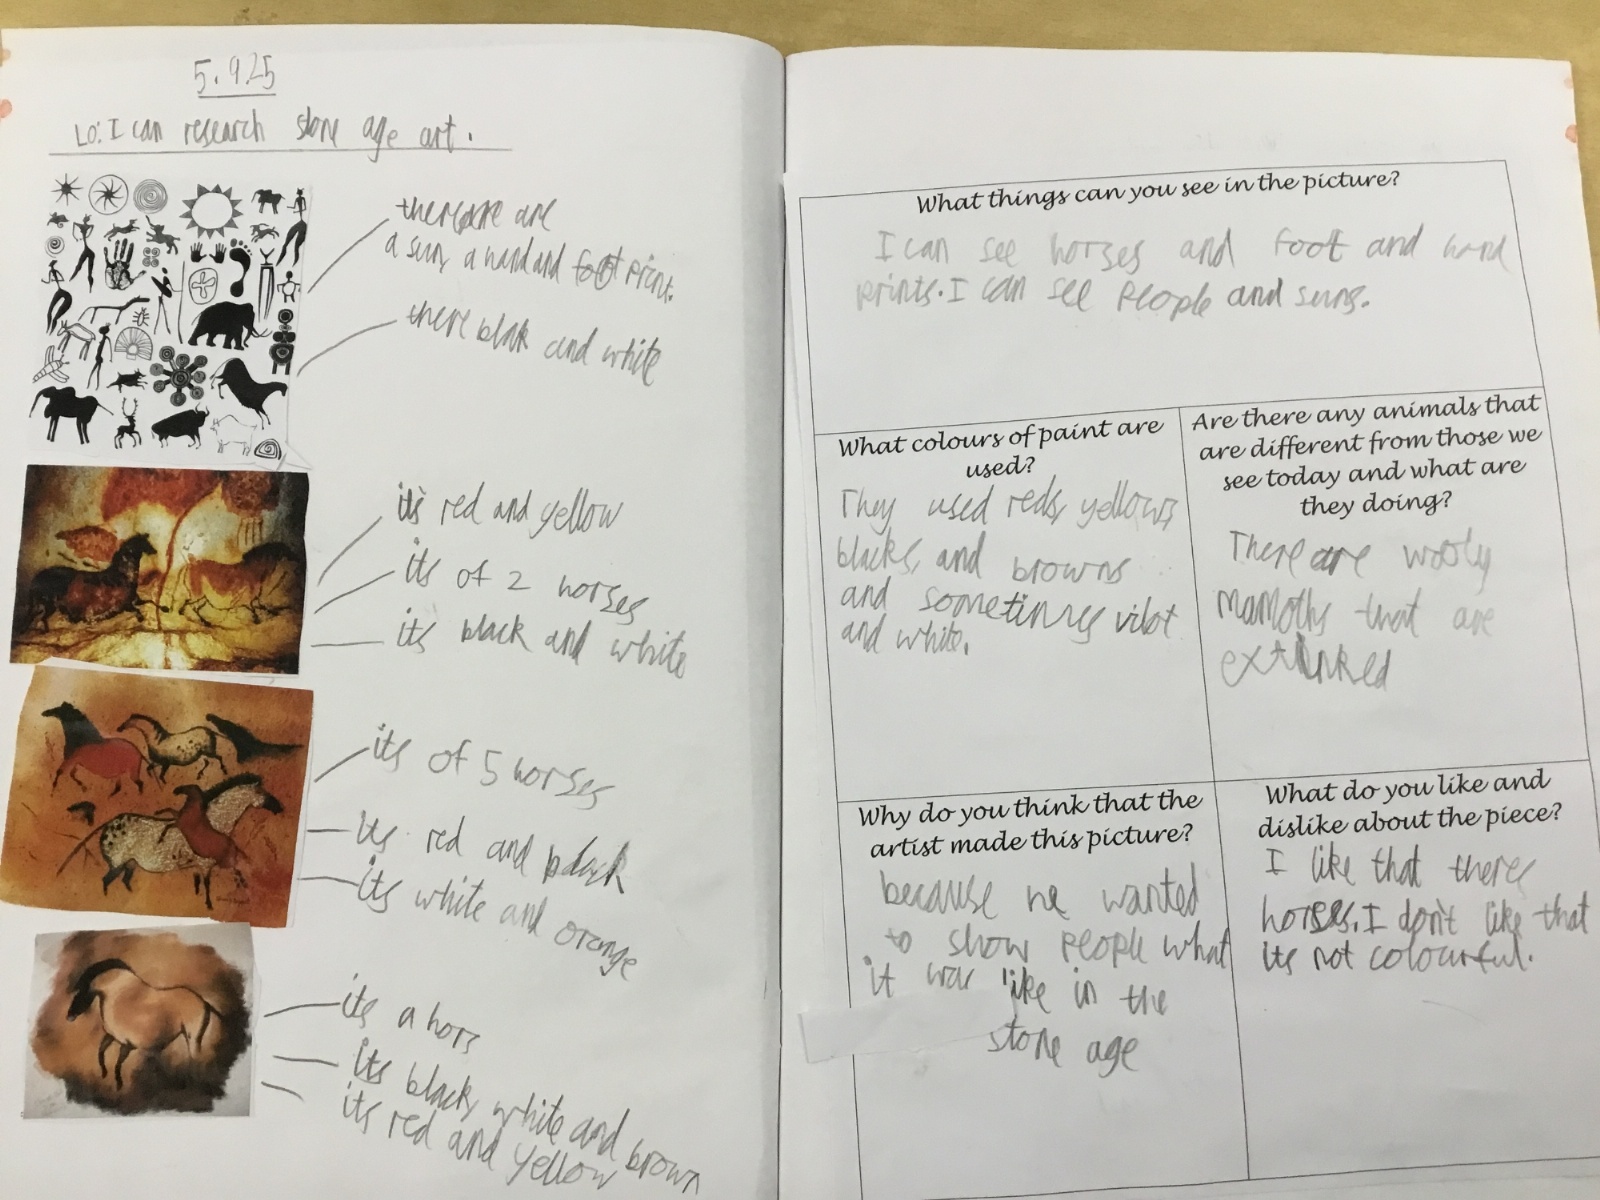 5.9.25
LO: I can research stone age art.
there are are
a sun, a hand and foot print.
there blak and white
its red and yellow
its of 2 horses
its black and white
its of 5 horses
its red and black
its white and orange
its a hors
its black, white and brown
its red and yellow
What things can you see in the picture?
I can see horses and foot and hand
prints. I can see People and suns.
What colours of paint are
used?
They used reds, yellows,
blacks, and browns
and sometimes vilot
and white.
Are there any animals that
are different from those we
see today and what are
they doing?
There are wooly
mamoths that are
extinked
Why do you think that the
artist made this picture?
because he wanted
to show People what
it was like in the
stone age
What do you like and
dislike about the piece?
I like that theres
horses. I don't like that
its not colourful.